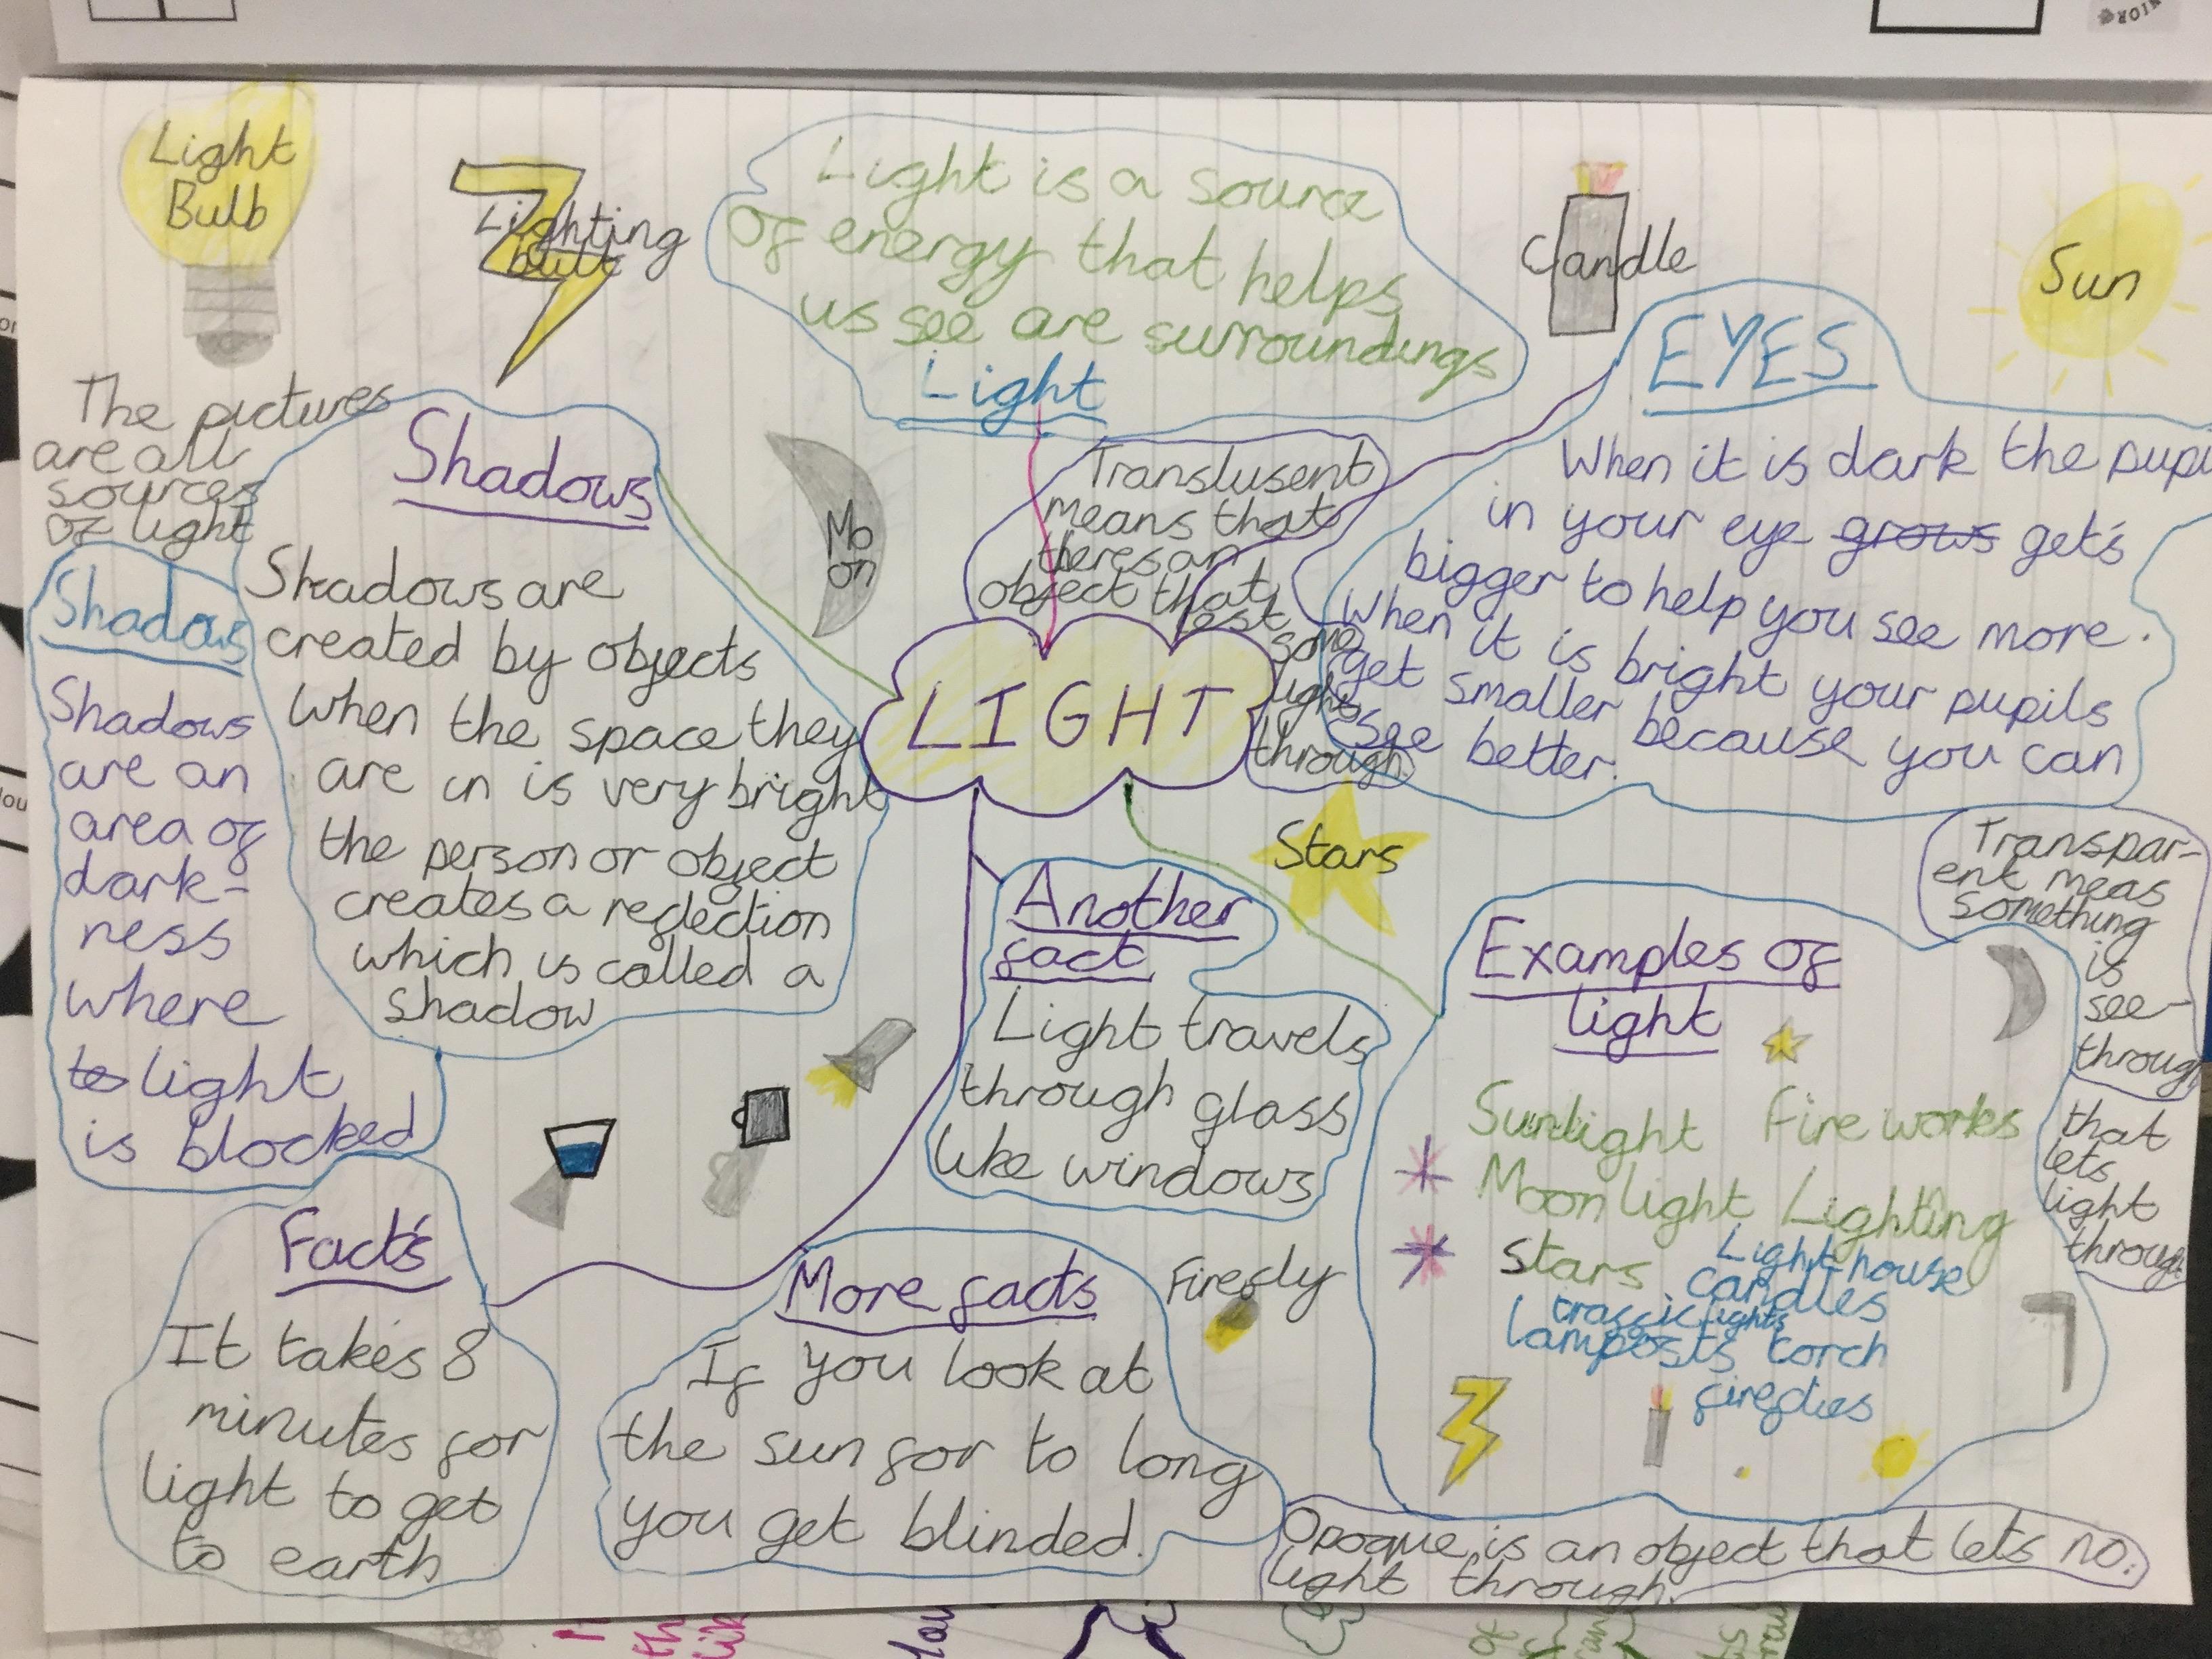 Light
Bulb
Lighting
bult
Light is a source
of energy that helps
us see are surroundings
Light
Candle
Sun
The pictures
are all
sources
of light
Shadows
Shadows are
created by objects
When the space they
are in is very bright
the person or object
creates a reflection
which is called a
shadow
Shadows
Shadows
are an
area of
dark-
ness
where
to light
is blocked
Mo
on
Translusent
means that
theres an
object that
lest
some
light
through.
EYES
When it is dark the pupi
in your eye grows get's
bigger to help you see more.
When it is bright your pupils
get smaller because you can
see better.
LIGHT
Stars
Another
fact
Light travels
through glass
like windows
Transpar-
ent meas
something
is
see-
throug
that
lets
light
through
Examples of
light
Sunlight Fireworks
Moonlight Lighting
Stars Lighthouse
candles
traffic lights
lamposts torch
fireflies
Fact's
It takes 8
minutes for
light to get
to earth
More facts
If you look at
the sun for to long
you get blinded.
Firefly
Opoque is an object that lets no.
light through.